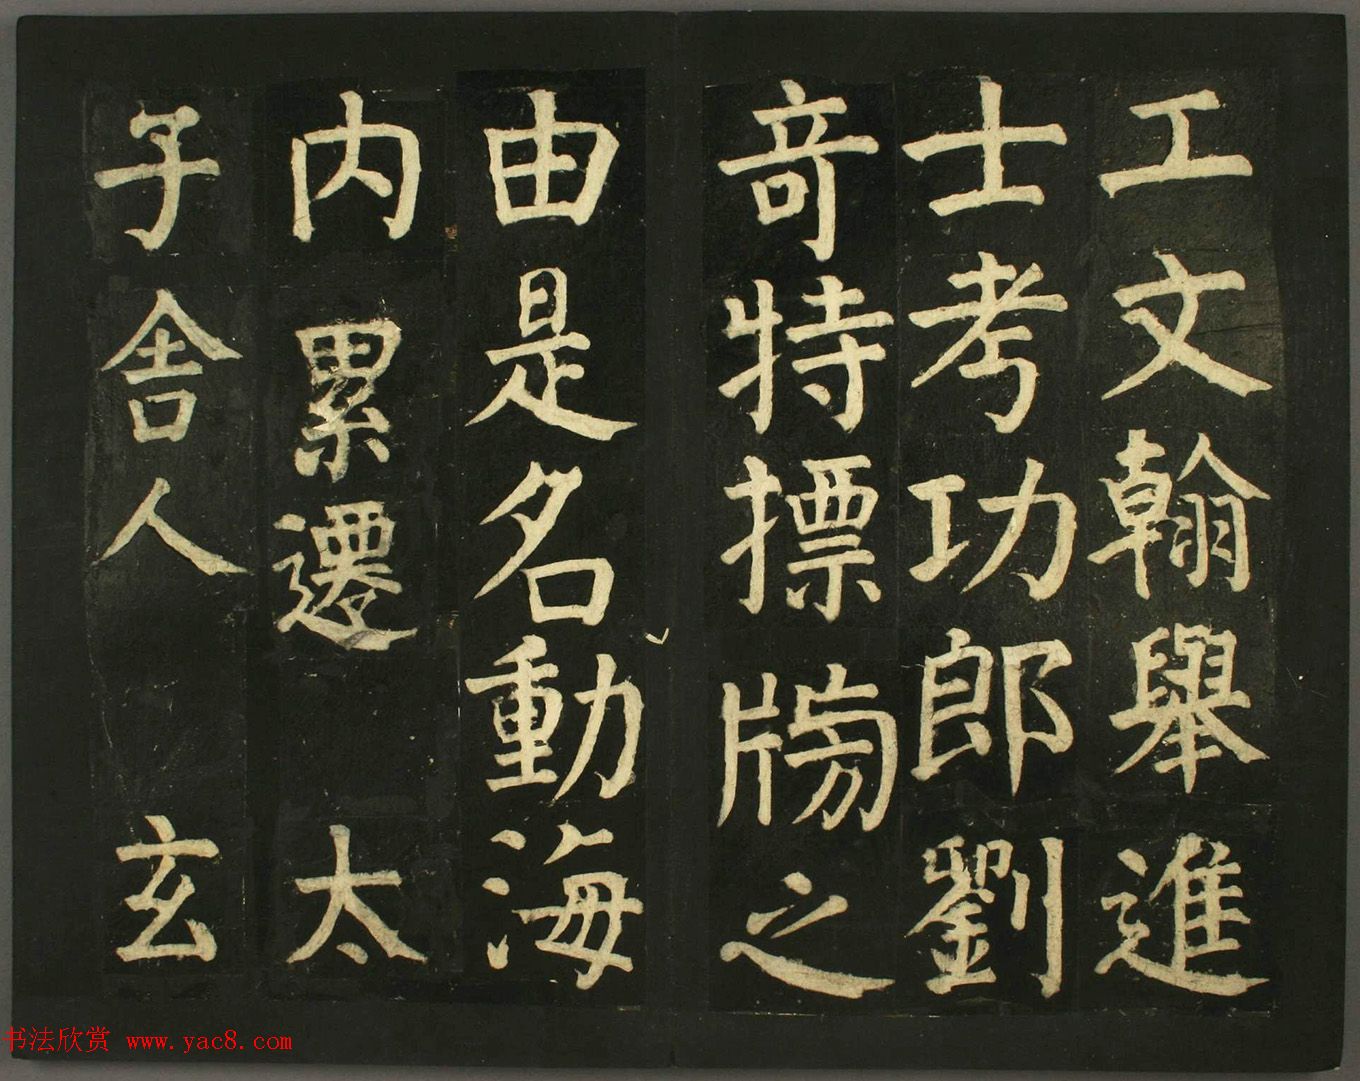 工文翰舉進
士考功郎劉
竒特摽牓之
由是名動海
内累遷太
子舎人玄
书法欣赏 www.yac8.com